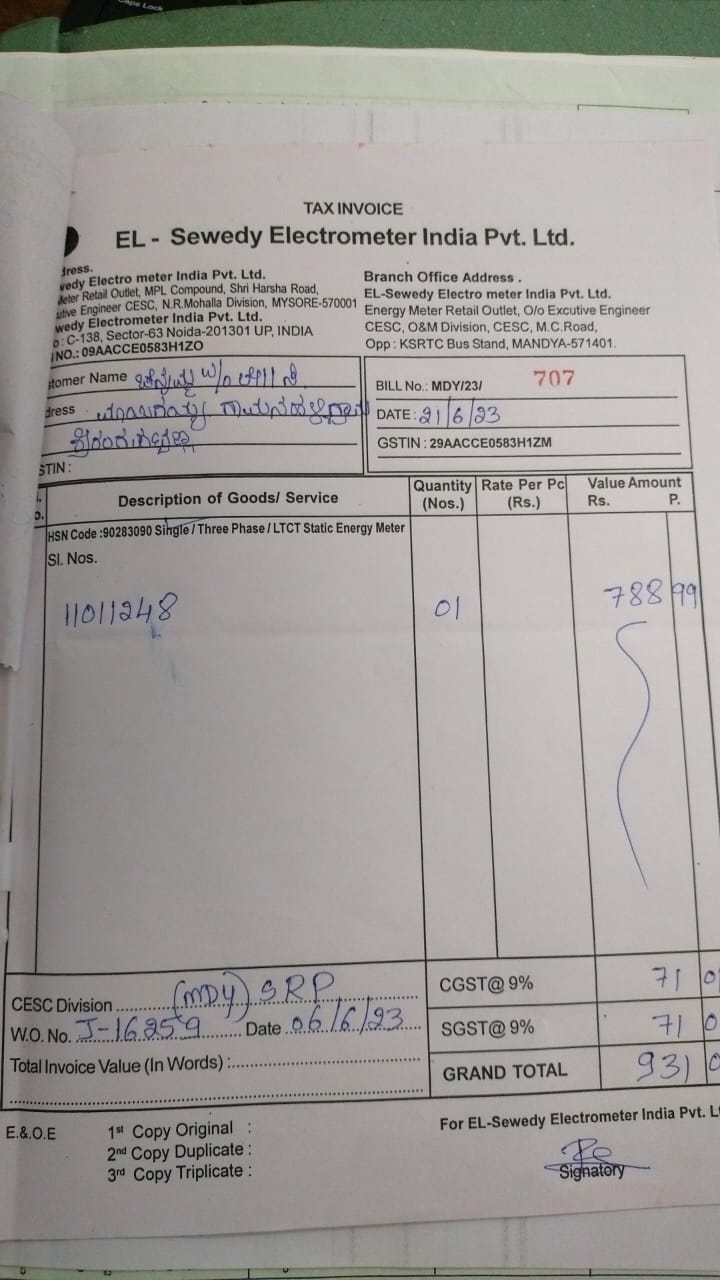 Caps Lock
TAX INVOICE
EL - Sewedy Electrometer India Pvt. Ltd.
dress.
wedy Electro meter India Pvt. Ltd.
Meter Retail Outlet, MPL Compound, Shri Harsha Road,
utive Engineer CESC, N.R.Mohalla Division, MYSORE-570001
wedy Electrometer India Pvt. Ltd.
o : C-138, Sector-63 Noida-201301 UP, INDIA
NO.: 09AACCE0583H1ZO
Branch Office Address .
EL-Sewedy Electro meter India Pvt. Ltd.
Energy Meter Retail Outlet, O/o Excutive Engineer
CESC, O&M Division, CESC, M.C.Road,
Opp : KSRTC Bus Stand, MANDYA-571401.
tomer Name W/o
dress
STIN :
BILL No.: MDY/23/ 707
DATE : 21/6/23
GSTIN : 29AACCE0583H1ZM
Description of Goods/ Service
Quantity (Nos.)
Rate Per Pc (Rs.)
Value Amount
Rs. P.
HSN Code :90283090 Single / Three Phase / LTCT Static Energy Meter
Sl. Nos.
11011248 01 788 99
CESC Division (MDY) SRP
W.O. No. J-16259 Date 06/6/23
Total Invoice Value (In Words) :
CGST@ 9% 71
SGST@ 9% 71
GRAND TOTAL 931
E.&.O.E
1st Copy Original :
2nd Copy Duplicate :
3rd Copy Triplicate :
For EL-Sewedy Electrometer India Pvt. Lt
Signatory